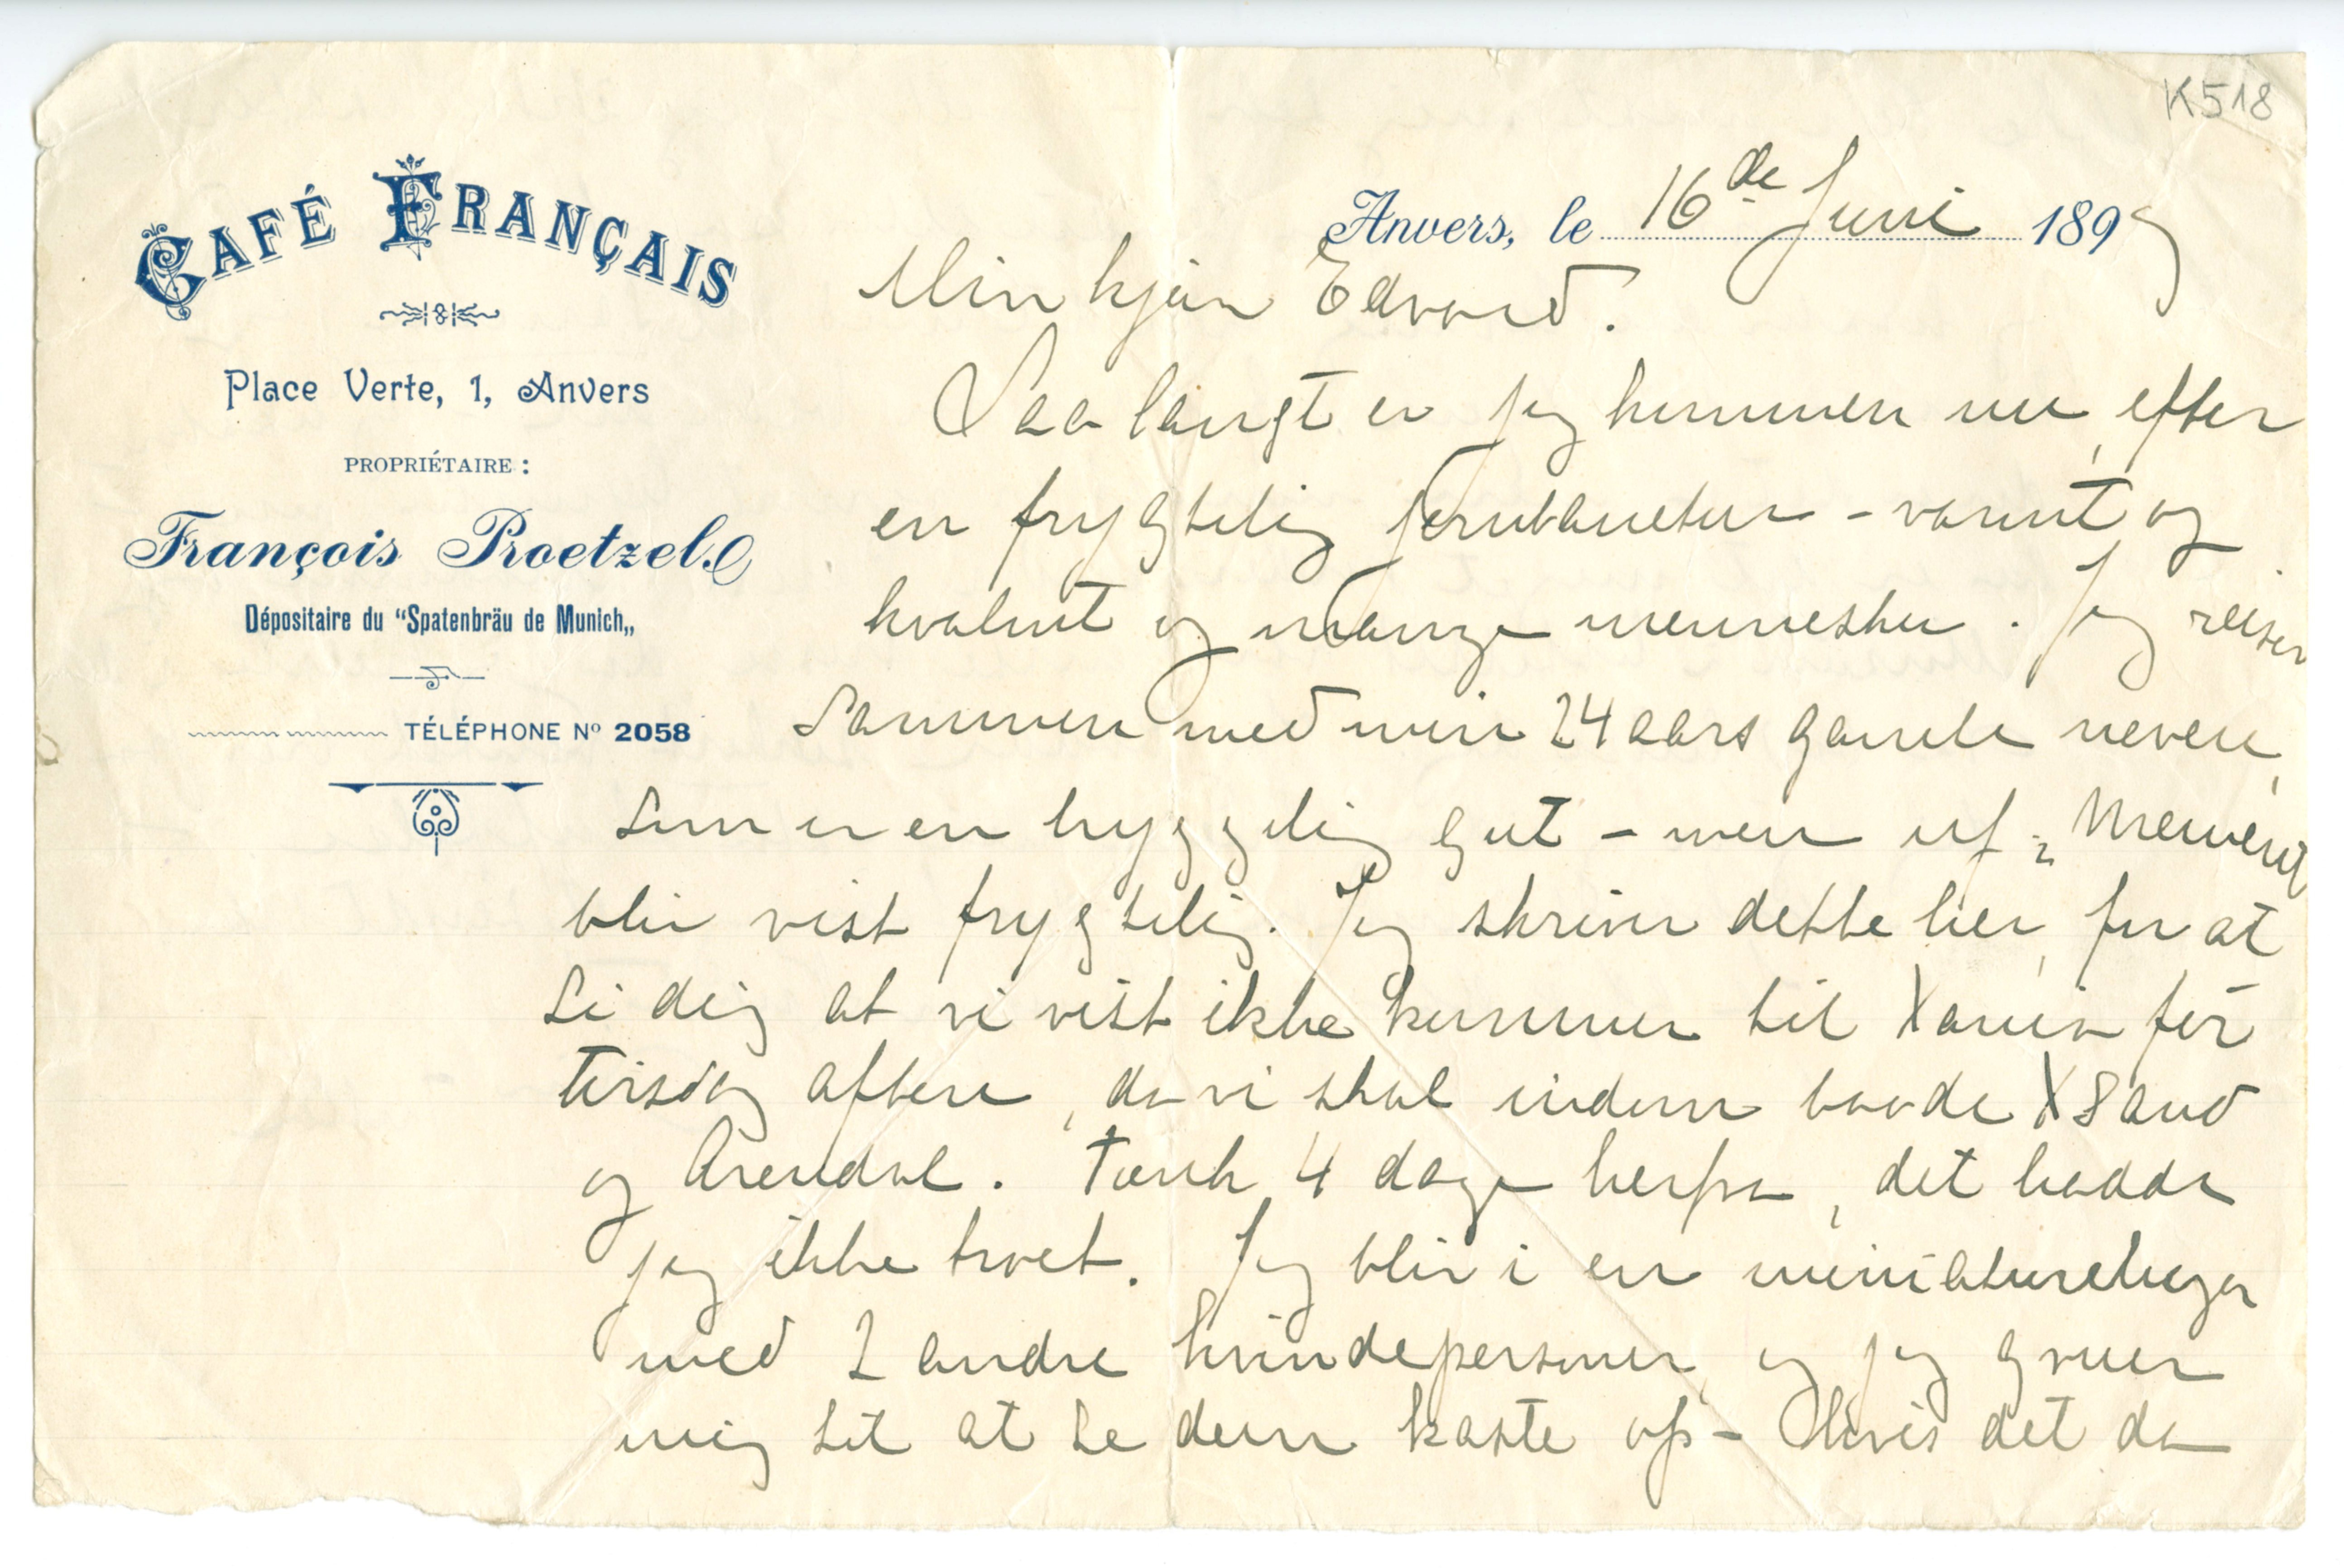 K518
CAFÉ FRANÇAIS
Place Verte, 1, Anvers
PROPRIÉTAIRE :
François Proetzel
Dépositaire du “Spatenbräu de Munich„
TÉLÉPHONE Nº 2058
Anvers, le 16de Juni 1899
Min kjære Edvard.
Saa langt er jeg kommen nu, efter
en frygtelig jernbanetur – varmt og
kvalmt og mange mennesker. Jeg reiser
sammen med min 24 aars gamle neveu,
som er en hyggelig gut – men uf,
blir vist frygtelig. Jeg skriver dette her, for at
si dig at vi vist ikke kommer til Xania før
tirsdag aften, da vi skal indom baade XSand
og Arendal. Tænk 4 dage herfra, det hadde
jeg ikke troet. Jeg blir i en miniaturelugar
med 2 andre kvindepersoner, og jeg gruer
mig til at se dem kaste op – Hvis det da